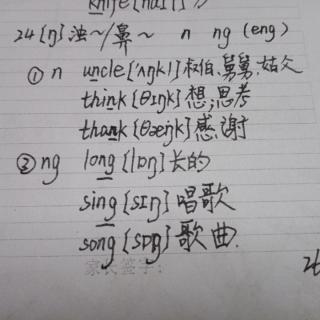 knife [naif] 刀
24 [ŋ] 浊~/鼻~ n ng (eng)
① n uncle ['ʌŋkl] 叔伯、舅舅、姑父
think [θɪŋk] 想,思考
thank [θæŋk] 感谢
② ng long [lɒŋ] 长的
sing [sɪŋ] 唱歌
song [sɒŋ] 歌曲.
家长签字:
26